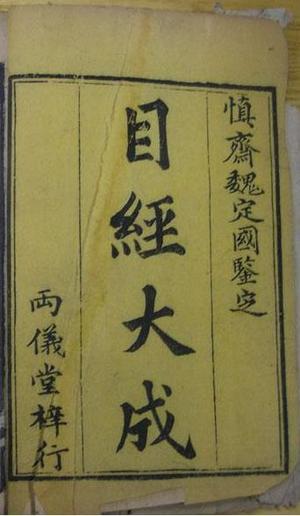 慎齋魏定國鑒定
目經大成
両儀堂梓行